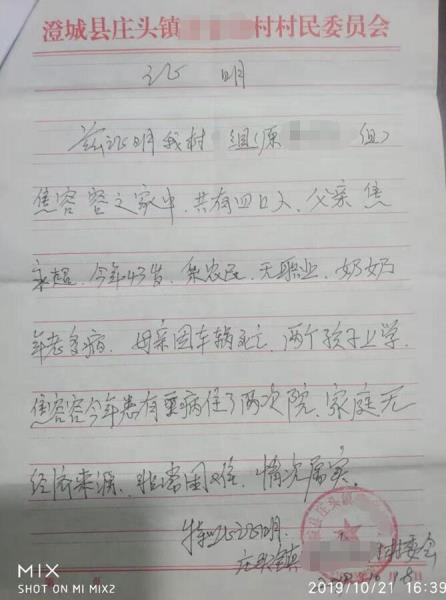 澄城县庄头镇 村村民委员会
证 明
兹证明我村 组(原 组)
焦容容之家中,共有四口人,父亲焦
,今年43岁,系农民,无职业,奶奶
年老多病,母亲因车祸死亡,两个孩子上学,
焦容容今年患有重病住了两次院,家庭无
经济来源,非常困难,情况属实。
特此证明.
庄头镇 村委会
MIX
SHOT ON MI MIX2
2019/10/21 16:39